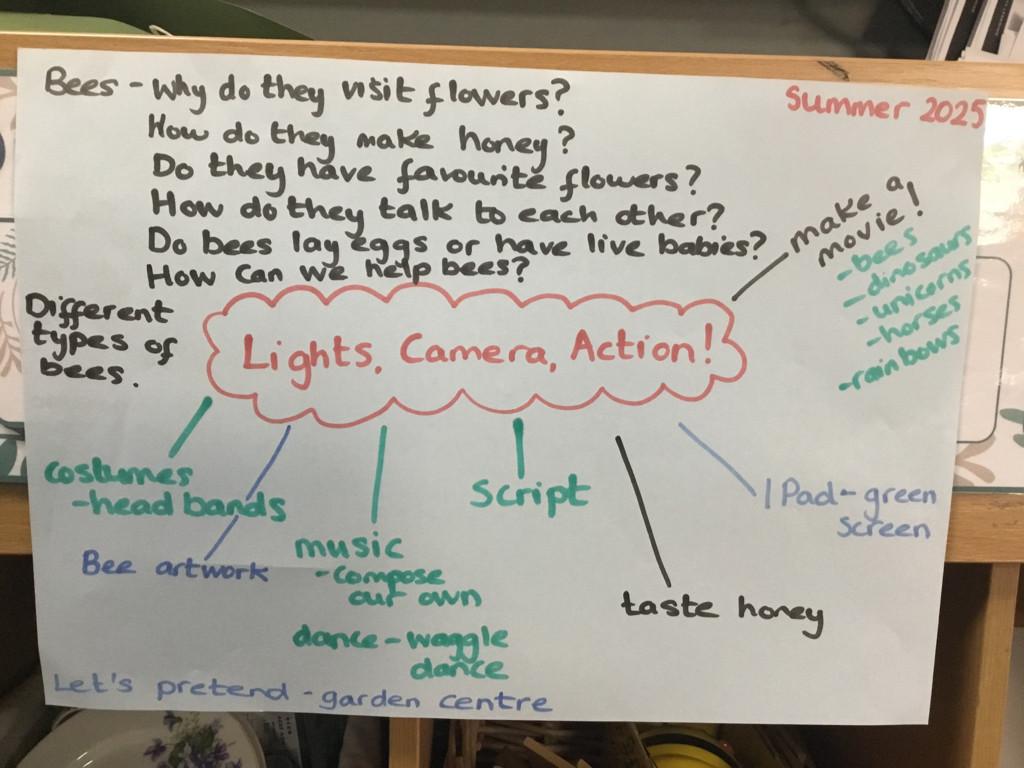 Bees - Why do they visit flowers?
Summer 2025
How do they make honey?
Do they have favourite flowers?
How do they talk to each other?
Do bees lay eggs or have live babies?
How can we help bees?
make a
movie!
- bees
- dinosaurs
- unicorns
- horses
- rainbows
Different
types of
bees.
Lights, Camera, Action!
costumes
- head bands
Bee artwork
music
- compose
our own
dance - waggle
dance
script
taste honey
I Pad - green
screen
Let's pretend - garden centre